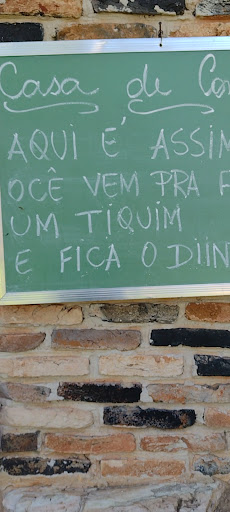 Casa de Co
AQUI É ASSIM
OCÊ VEM PRA F
UM TIQUIM
E FICA O DIIN